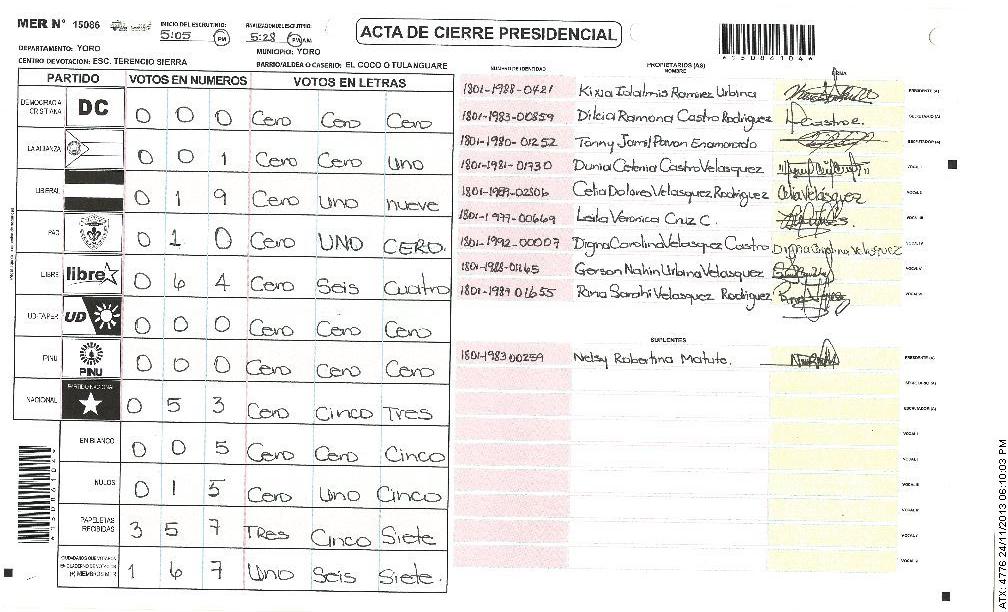 MER N° 15086 INICIO DEL ESCRUTINIO: 5:05 PM FINALIZACION DEL ESCRUTINIO: 5:28 PM AM
ACTA DE CIERRE PRESIDENCIAL
DEPARTAMENTO: YORO MUNICIPIO: YORO
CENTRO DE VOTACION: ESC. TERENCIO SIERRA BARRIO/ALDEA O CASERIO: EL COCO O TULANGUARE
PARTIDO VOTOS EN NUMEROS VOTOS EN LETRAS
DEMOCRACIA CRISTIANA DC 0 0 0 Cero Cero Cero
LA ALIANZA 0 0 1 Cero Cero Uno
LIBERAL 0 1 9 Cero Uno nueve
PAC 0 1 0 Cero UNO CERO.
LIBRE libre 0 6 4 Cero Seis Cuatro
UD-FAPER UD 0 0 0 Cero Cero Cero
PINU PINU 0 0 0 Cero Cero Cero
NACIONAL PARTIDO NACIONAL 0 5 3 Cero Cinco Tres
EN BLANCO 0 0 5 Cero Cero Cinco
NULOS 0 1 5 Cero Uno Cinco
PAPELETAS RECIBIDAS 3 5 7 TRes Cinco Siete
CIUDADANOS QUE VOTARON EN CUADERNO DE VOTACION (+) MIEMBROS MER 1 6 7 Uno Seis Siete.
NUMERO DE IDENTIDAD PROPIETARIOS (AS) NOMBRE FIRMA
1801-1988-0421 Kixia Idalmis Ramirez Urbina PRESIDENTE (A)
1801-1983-00859 Dilcia Ramona Castro Rodriguez HCastro e. SECRETARIO (A)
1801-1980-01252 Tonny Jamil Pavon Enamorado ESCRUTADOR (A)
1801-1981-01730 Dunia Celenia Castro Velasquez VOCAL I
1801-1987-02806 Celia Dolores Velasquez Rodriguez Celia Velásquez VOCAL II
1801-1977-00669 Leila Veronica Cruz C. VOCAL III
1801-1992-00007 Digna Carolina Velasquez Castro Digna Carolina Velasquez VOCAL IV
1801-1988-01165 Gerson Nahin Urbina Velasquez VOCAL V
1801-1989 01655 Rina Sarahi Velasquez Rodriguez VOCAL VI
SUPLENTES
1801-1983 00259 Nelsy Robertina Matute. PRESIDENTE (A)
SECRETARIO (A)
ESCRUTADOR (A)
VOCAL I
VOCAL II
VOCAL III
VOCAL IV
VOCAL V
VOCAL VI
ATX: 4776 24/11/2013 06:10:03 PM